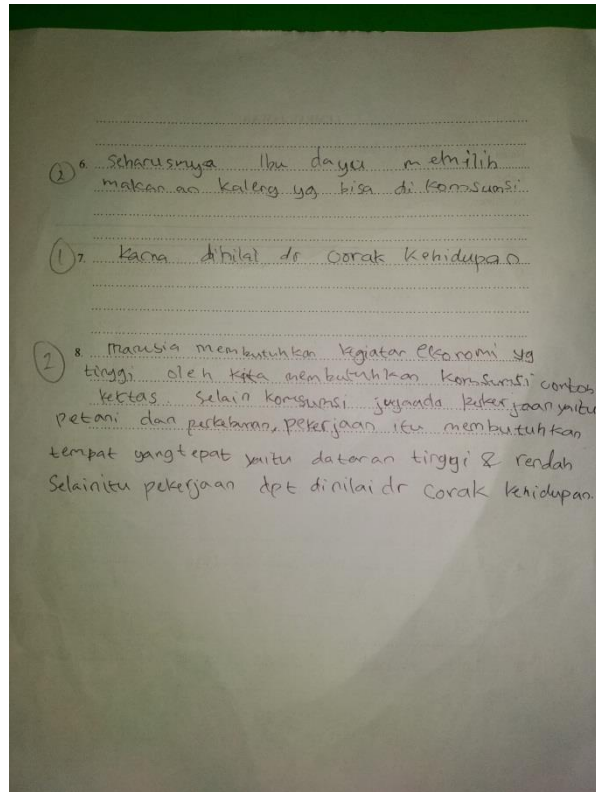 (2) 6. seharusnya Ibu dayu memilih
makan an kaleng yg bisa di komsumsi
(1) 7. karna dihilai dr corak kehidupan
(2) 8. manusia membutuhkan kegiatan ekonomi yg
tinggi oleh kita membutuhkan komsumsi contoh
kertas. Selain komsumsi jugaada pekerjaan yaitu
petani dan perkebunan, pekerjaan itu membutuhkan
tempat yang tepat yaitu dataran tinggi & rendah
Selainitu pekerjaan dpt dinilai dr corak kehidupan.